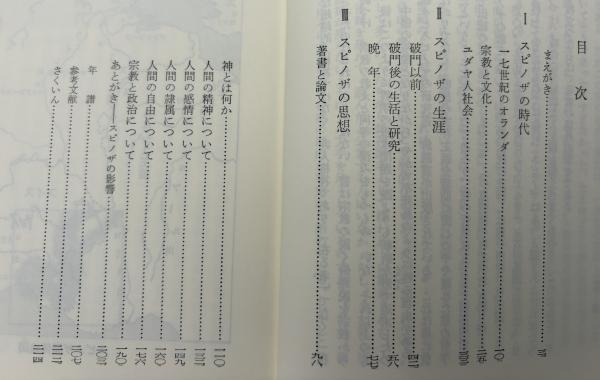 目次
まえがき……三
Ⅰ スピノザの時代
一七世紀のオランダ……一〇
宗教と文化……
ユダヤ人社会……
Ⅱ スピノザの生涯
破門以前……四二
破門後の生活と研究……五八
晩年……七七
Ⅲ スピノザの思想
著書と論文……九八
神とは何か……一一〇
人間の精神について……
人間の感情について……一四九
人間の隷属について……一六〇
人間の自由について……一七六
宗教と政治について……一九〇
あとがき――スピノザの影響……二〇三
年譜……二〇七
参考文献……
さくいん……二一四